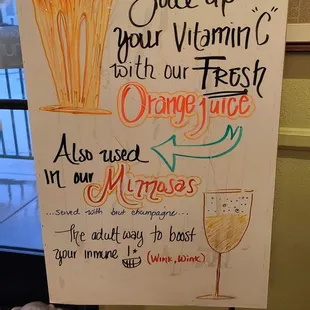 Juice up
your Vitamin "C"
with our FRESH
Orange juice
Also used
IN our Mimosas
...served with brut champagne...
The adult way to boost
your inmune !*
(Wink, Wink)